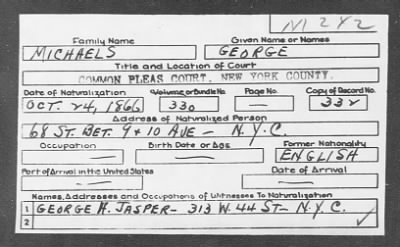 M 242
Family Name Given Name or Names
MICHAELS GEORGE
Title and Location of Court
COMMON PLEAS COURT, NEW YORK COUNTY.
Date of Naturalization Volume or Bundle No. Page No. Copy of Record No.
OCT. 24, 1866 330 — 332
Address of Naturalized Person
68 ST. BET. 9 + 10 AVE — N.Y.C.
Occupation Birth Date or Age Former Nationality
— — ENGLISH
Port of Arrival in the United States Date of Arrival
— —
Names, Addresses and Occupations of Witnesses To Naturalization
1 GEORGE H. JASPER — 313 W. 44 ST — N.Y.C.
2